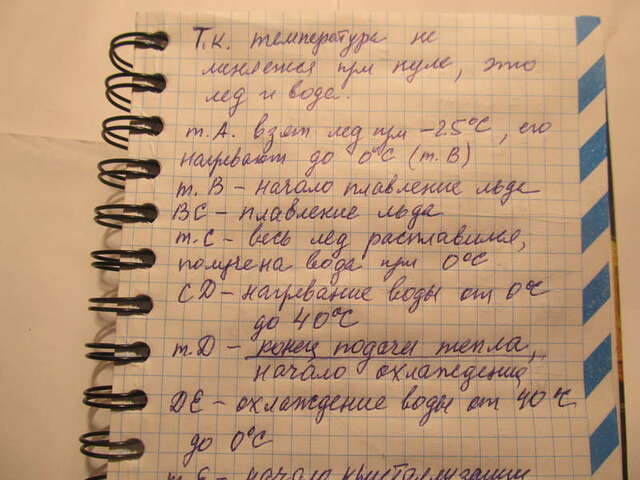 Т.к. температура не
меняется при нуле, это
лед и вода.
т.А. взят лед при -25°С, его
нагревают до 0°С (т.В)
т.В – начало плавление льда
ВС – плавление льда
т.С – весь лед расплавился,
получена вода при 0°С
СD – нагревание воды от 0°С
до 40°С
т.D – конец подачи тепла,
начало охлаждение
DE – охлаждение воды от 40°С
до 0°С
т.Е – начало кристаллизации